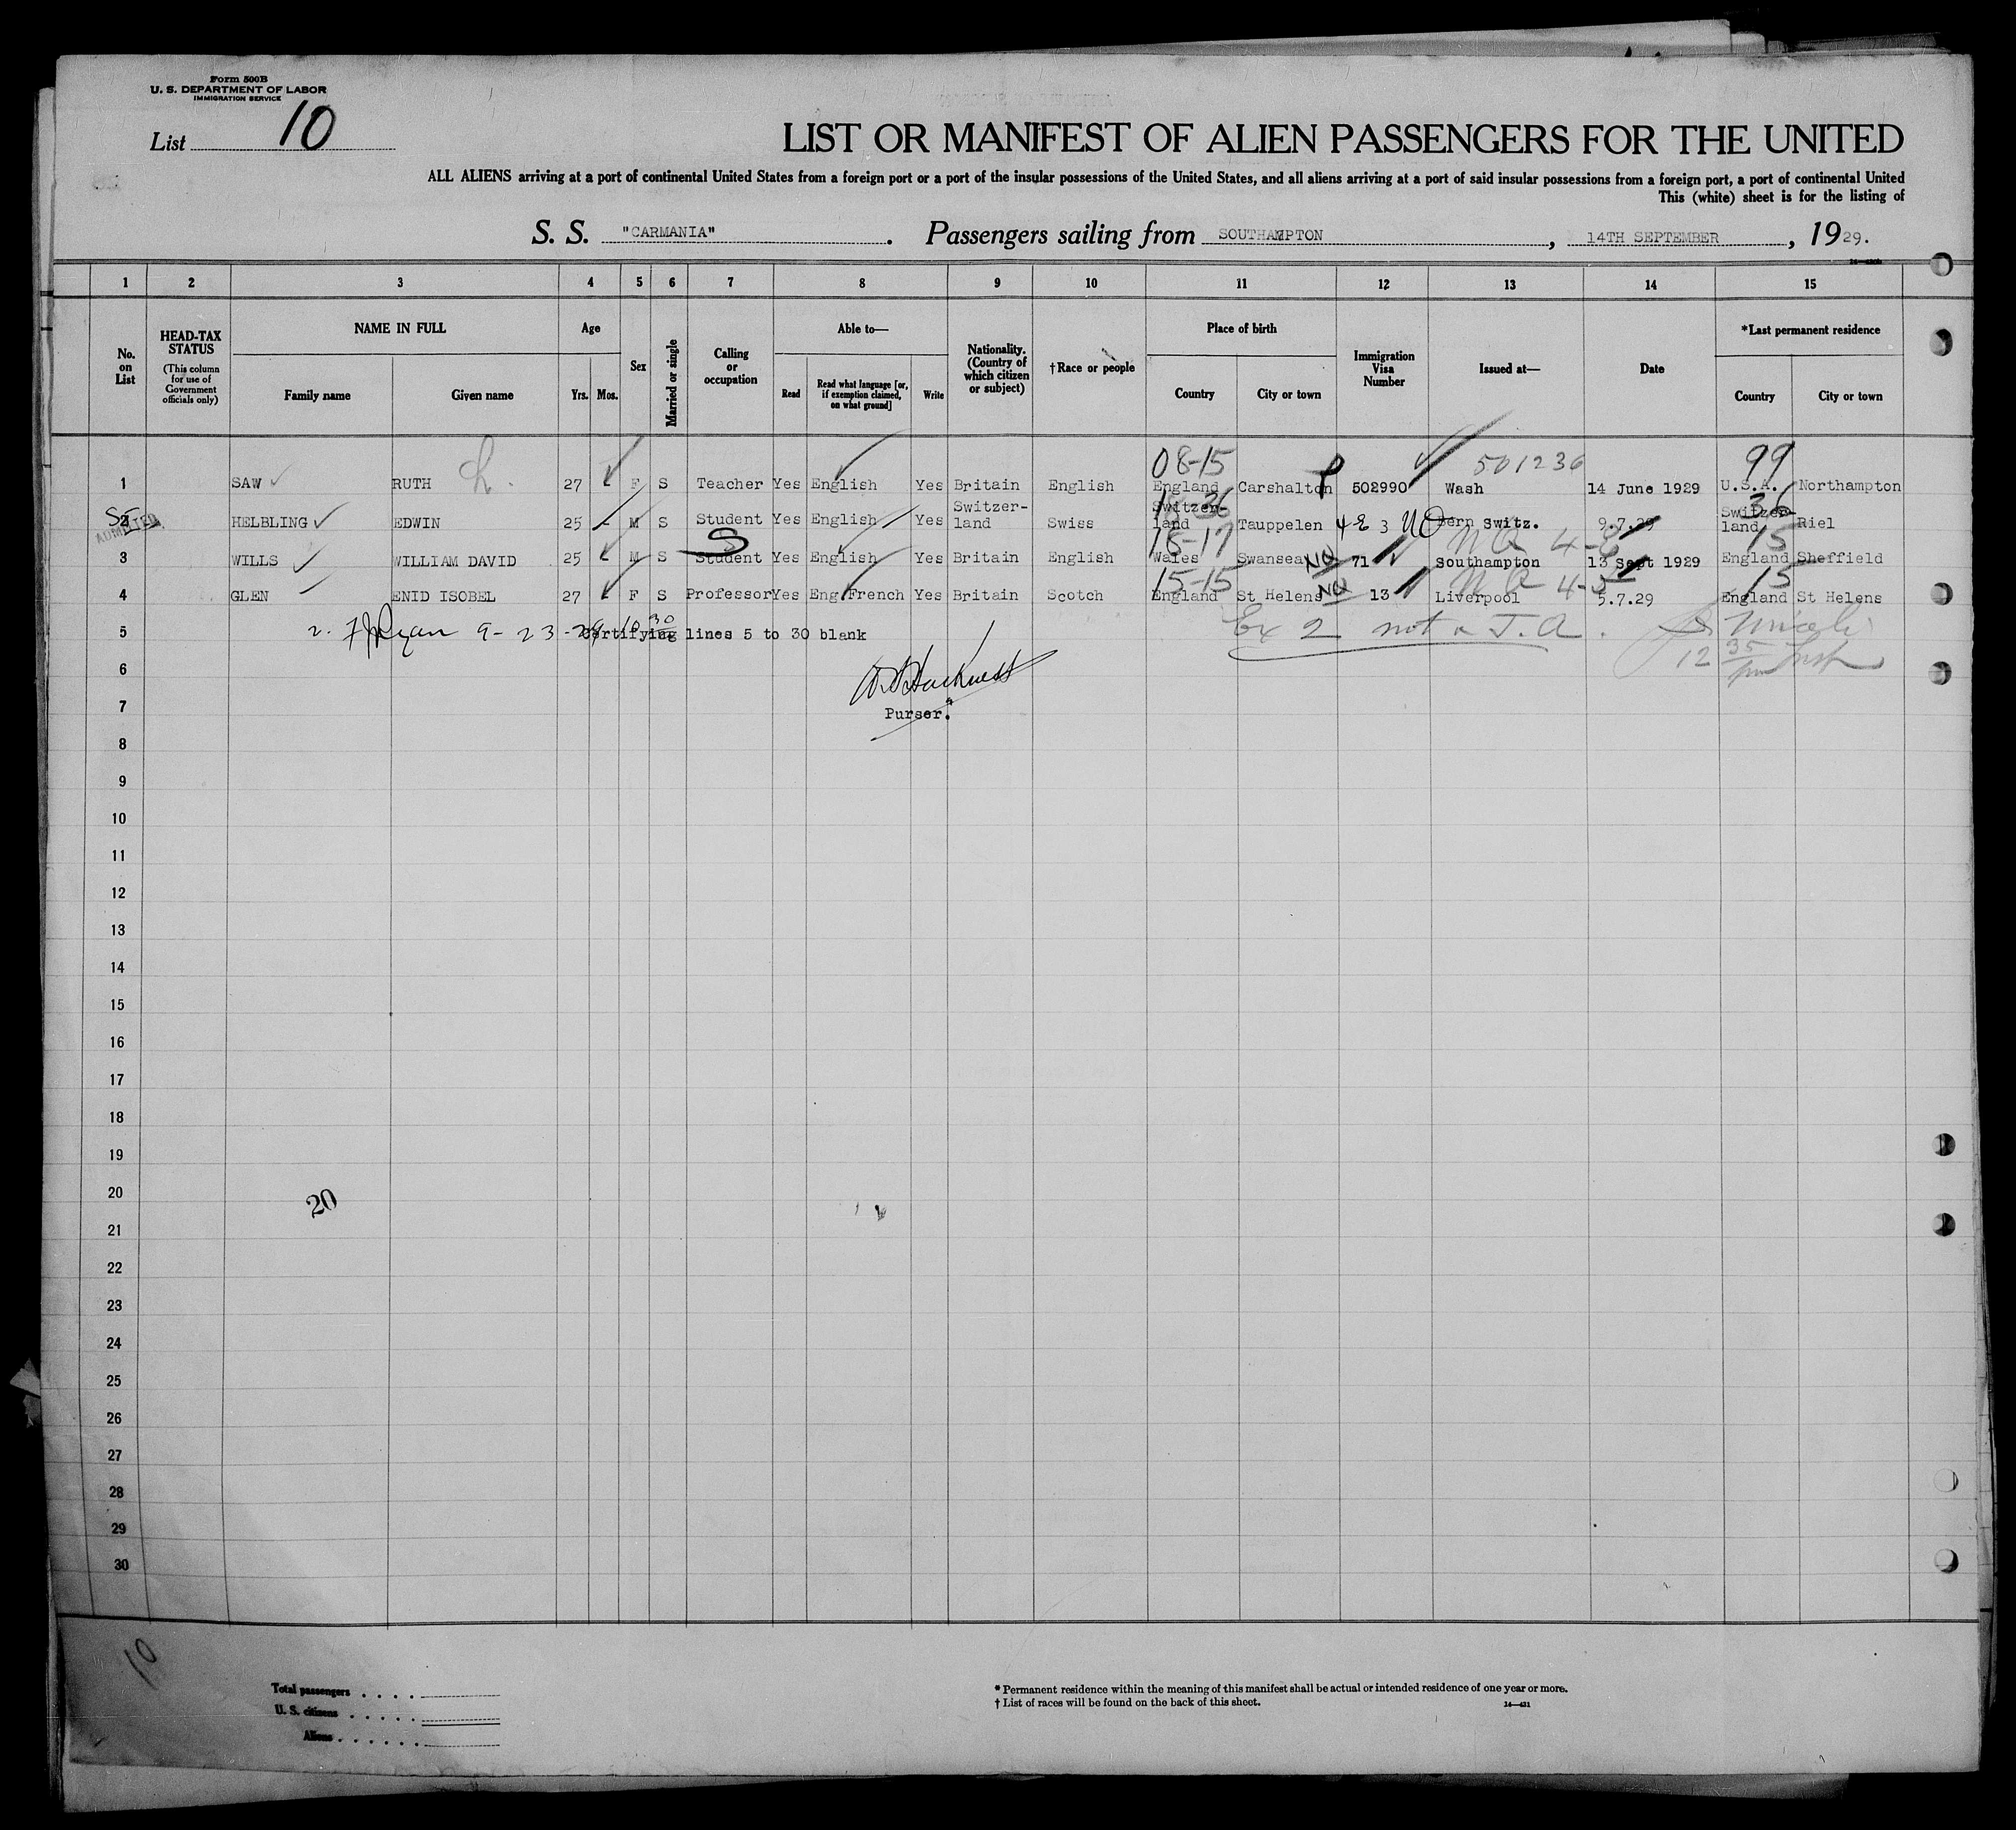 Form 500B
U. S. DEPARTMENT OF LABOR
IMMIGRATION SERVICE
List 10
LIST OR MANIFEST OF ALIEN PASSENGERS FOR THE UNITED
ALL ALIENS arriving at a port of continental United States from a foreign port or a port of the insular possessions of the United States, and all aliens arriving at a port of said insular possessions from a foreign port, a port of continental United
This (white) sheet is for the listing of
S. S. "CARMANIA" . Passengers sailing from SOUTHAMPTON , 14TH SEPTEMBER , 1929.
1 2 3 4 5 6 7 8 9 10 11 12 13 14 15
No. on List
HEAD-TAX STATUS
(This column for use of Government officials only)
NAME IN FULL
Family name Given name
Age
Yrs. Mos.
Sex
Married or single
Calling or occupation
Able to—
Read
Read what language [or, if exemption claimed, on what ground]
Write
Nationality. (Country of which citizen or subject)
†Race or people
Place of birth
Country City or town
Immigration Visa Number
Issued at—
Date
*Last permanent residence
Country City or town
08-15 501236 99
1 SAW RUTH 27 - F S Teacher Yes English Yes Britain English England Carshalton 502990 Wash 14 June 1929 U.S.A. Northampton
18-36 36
2 HELBLING EDWIN 25 - M S Student Yes English Yes Switzer-land Swiss Switzer-land Tauppelen 3 Bern Switz. 9.7.29 Switzer-land Riel
ADMITTED
S 18-17 NQ NQ 4-E 15
3 WILLS WILLIAM DAVID 25 - M S Student Yes English Yes Britain English Wales Swansea 71 Southampton 13 Sept 1929 England Sheffield
15-15 NQ NQ 15
4 GLEN ENID ISOBEL 27 - F S Professor Yes Eng French Yes Britain Scotch England St Helens 13 Liverpool 5.7.29 England St Helens
5 2. Ryan 9-23-29 10 30 Certifying lines 5 to 30 blank Ex 2 not
12 35 pm Insp
6
7 Purser.
8
9
10
11
12
13
14
15
16
17
18
19
20
20
21
22
23
24
25
26
27
28
29
30
10
Total passengers . . . .
U. S. citizens . . . . .
Aliens . . . . . .
* Permanent residence within the meaning of this manifest shall be actual or intended residence of one year or more.
† List of races will be found on the back of this sheet.
14—421